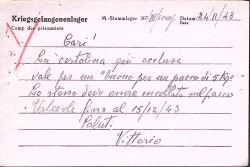 Kriegsgefangenenlager M.-Stammlager Datum 24/11/43
Camp des prisonniers Date
Cari!
La cartolina qui acclusa
vale per un "buono per un pacco di Kg
Lo stesso deve essere incollato sul pacco
Valevole fino al 15/12/43
Saluti.
Vittorio